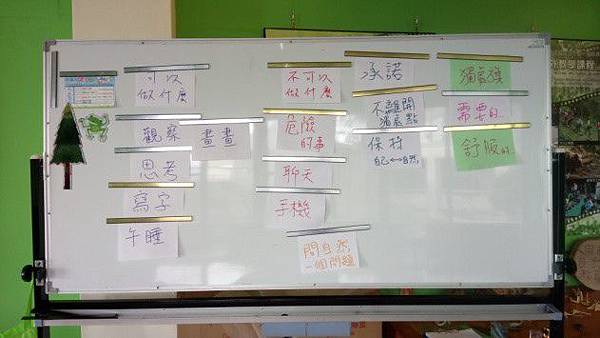 可以
做什麼
觀察
畫畫
思考
寫字
午睡
不可以
做什麼
危險
的事
聊天
手機
問自然
一個問題
承諾
不離開
獨處點
保持
自己↔自然
獨處墊
需要的
舒服的
教學課程